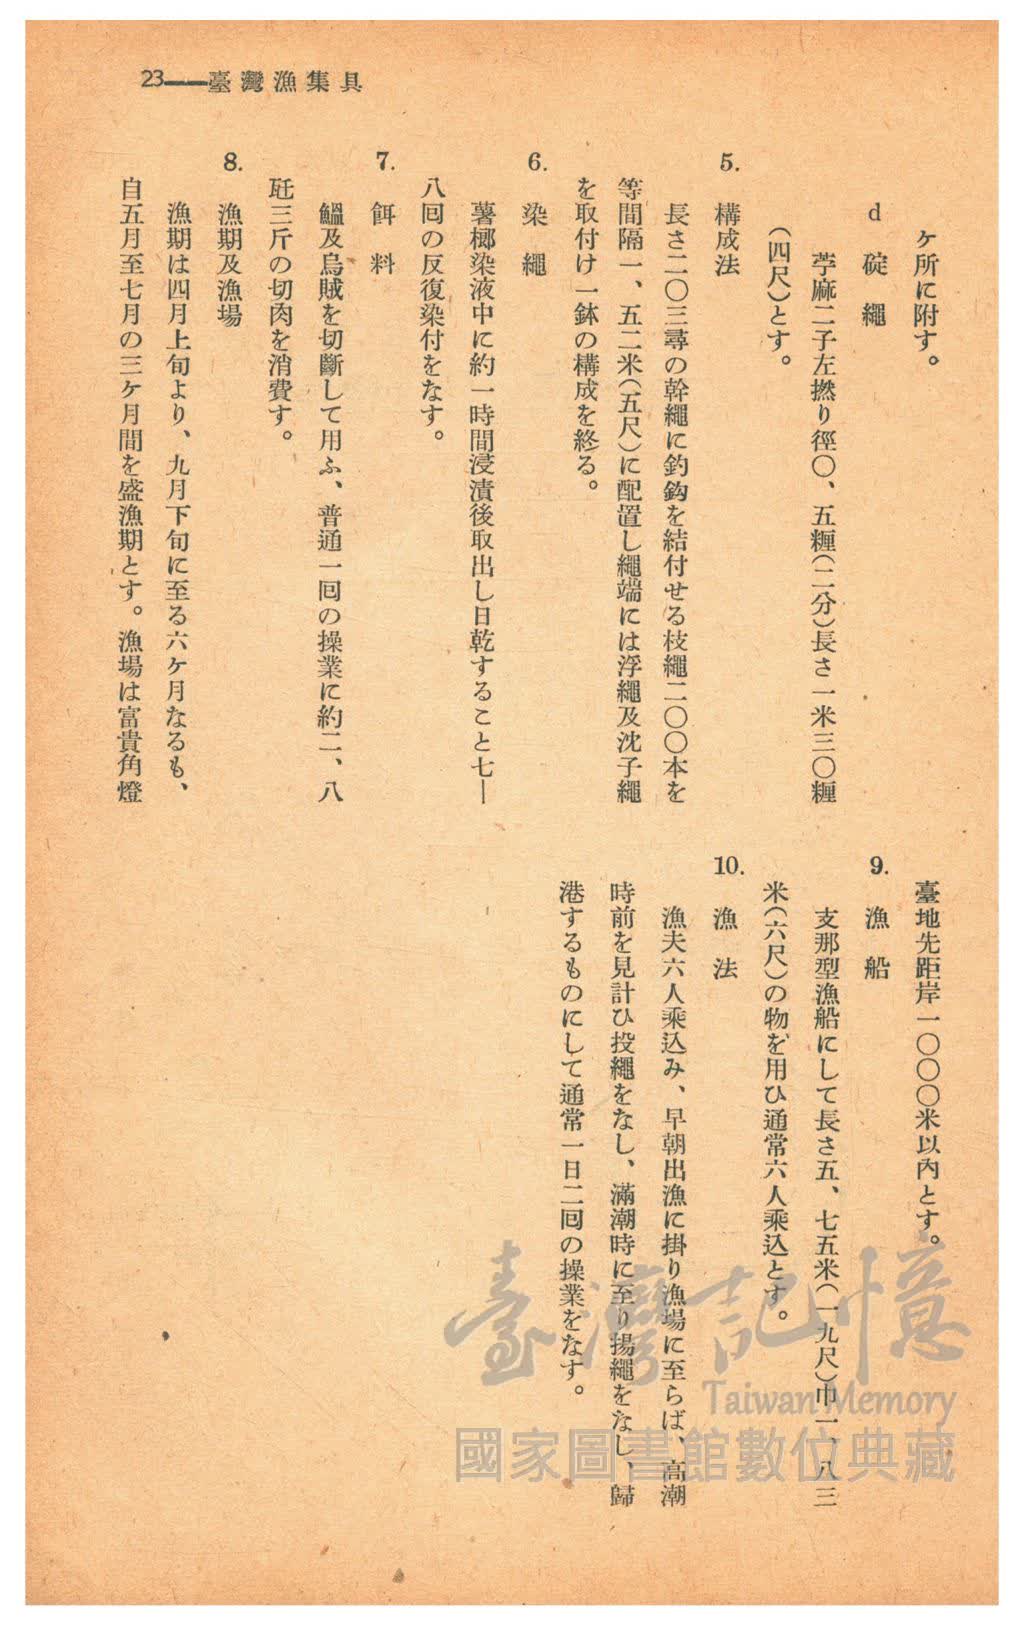 23——臺灣漁集具
ヶ所に附す。
d 碇繩
苧麻二子左撚り徑〇、五糎(二分)長さ一米三〇糎
(四尺)とす。
5. 構成法
長さ二〇三尋の幹繩に釣鈎を結付せる枝繩二〇〇本を
等間隔一、五二米(五尺)に配置し繩端には浮繩及沈子繩
を取付け一鉢の構成を終る。
6. 染繩
薯榔染液中に約一時間浸漬後取出し日乾すること七—
八囘の反復染付をなす。
7. 餌料
鰮及烏賊を切斷して用ふ、普通一囘の操業に約二、八
瓩三斤の切肉を消費す。
8. 漁期及漁場
漁期は四月上旬より、九月下旬に至る六ヶ月なるも、
自五月至七月の三ヶ月間を盛漁期とす。漁場は富貴角燈
臺地先距岸一〇〇〇米以內とす。
9. 漁船
支那型漁船にして長さ五、七五米(一九尺)巾一、八三
米(六尺)の物を用ひ通常六人乘込とす。
10. 漁法
漁夫六人乘込み、早朝出漁に掛り漁場に至らば、高潮
時前を見計ひ投繩をなし、滿潮時に至り揚繩をなし、歸
港するものにして通常一日二囘の操業をなす。
臺灣記憶
Taiwan Memory
國家圖書館數位典藏